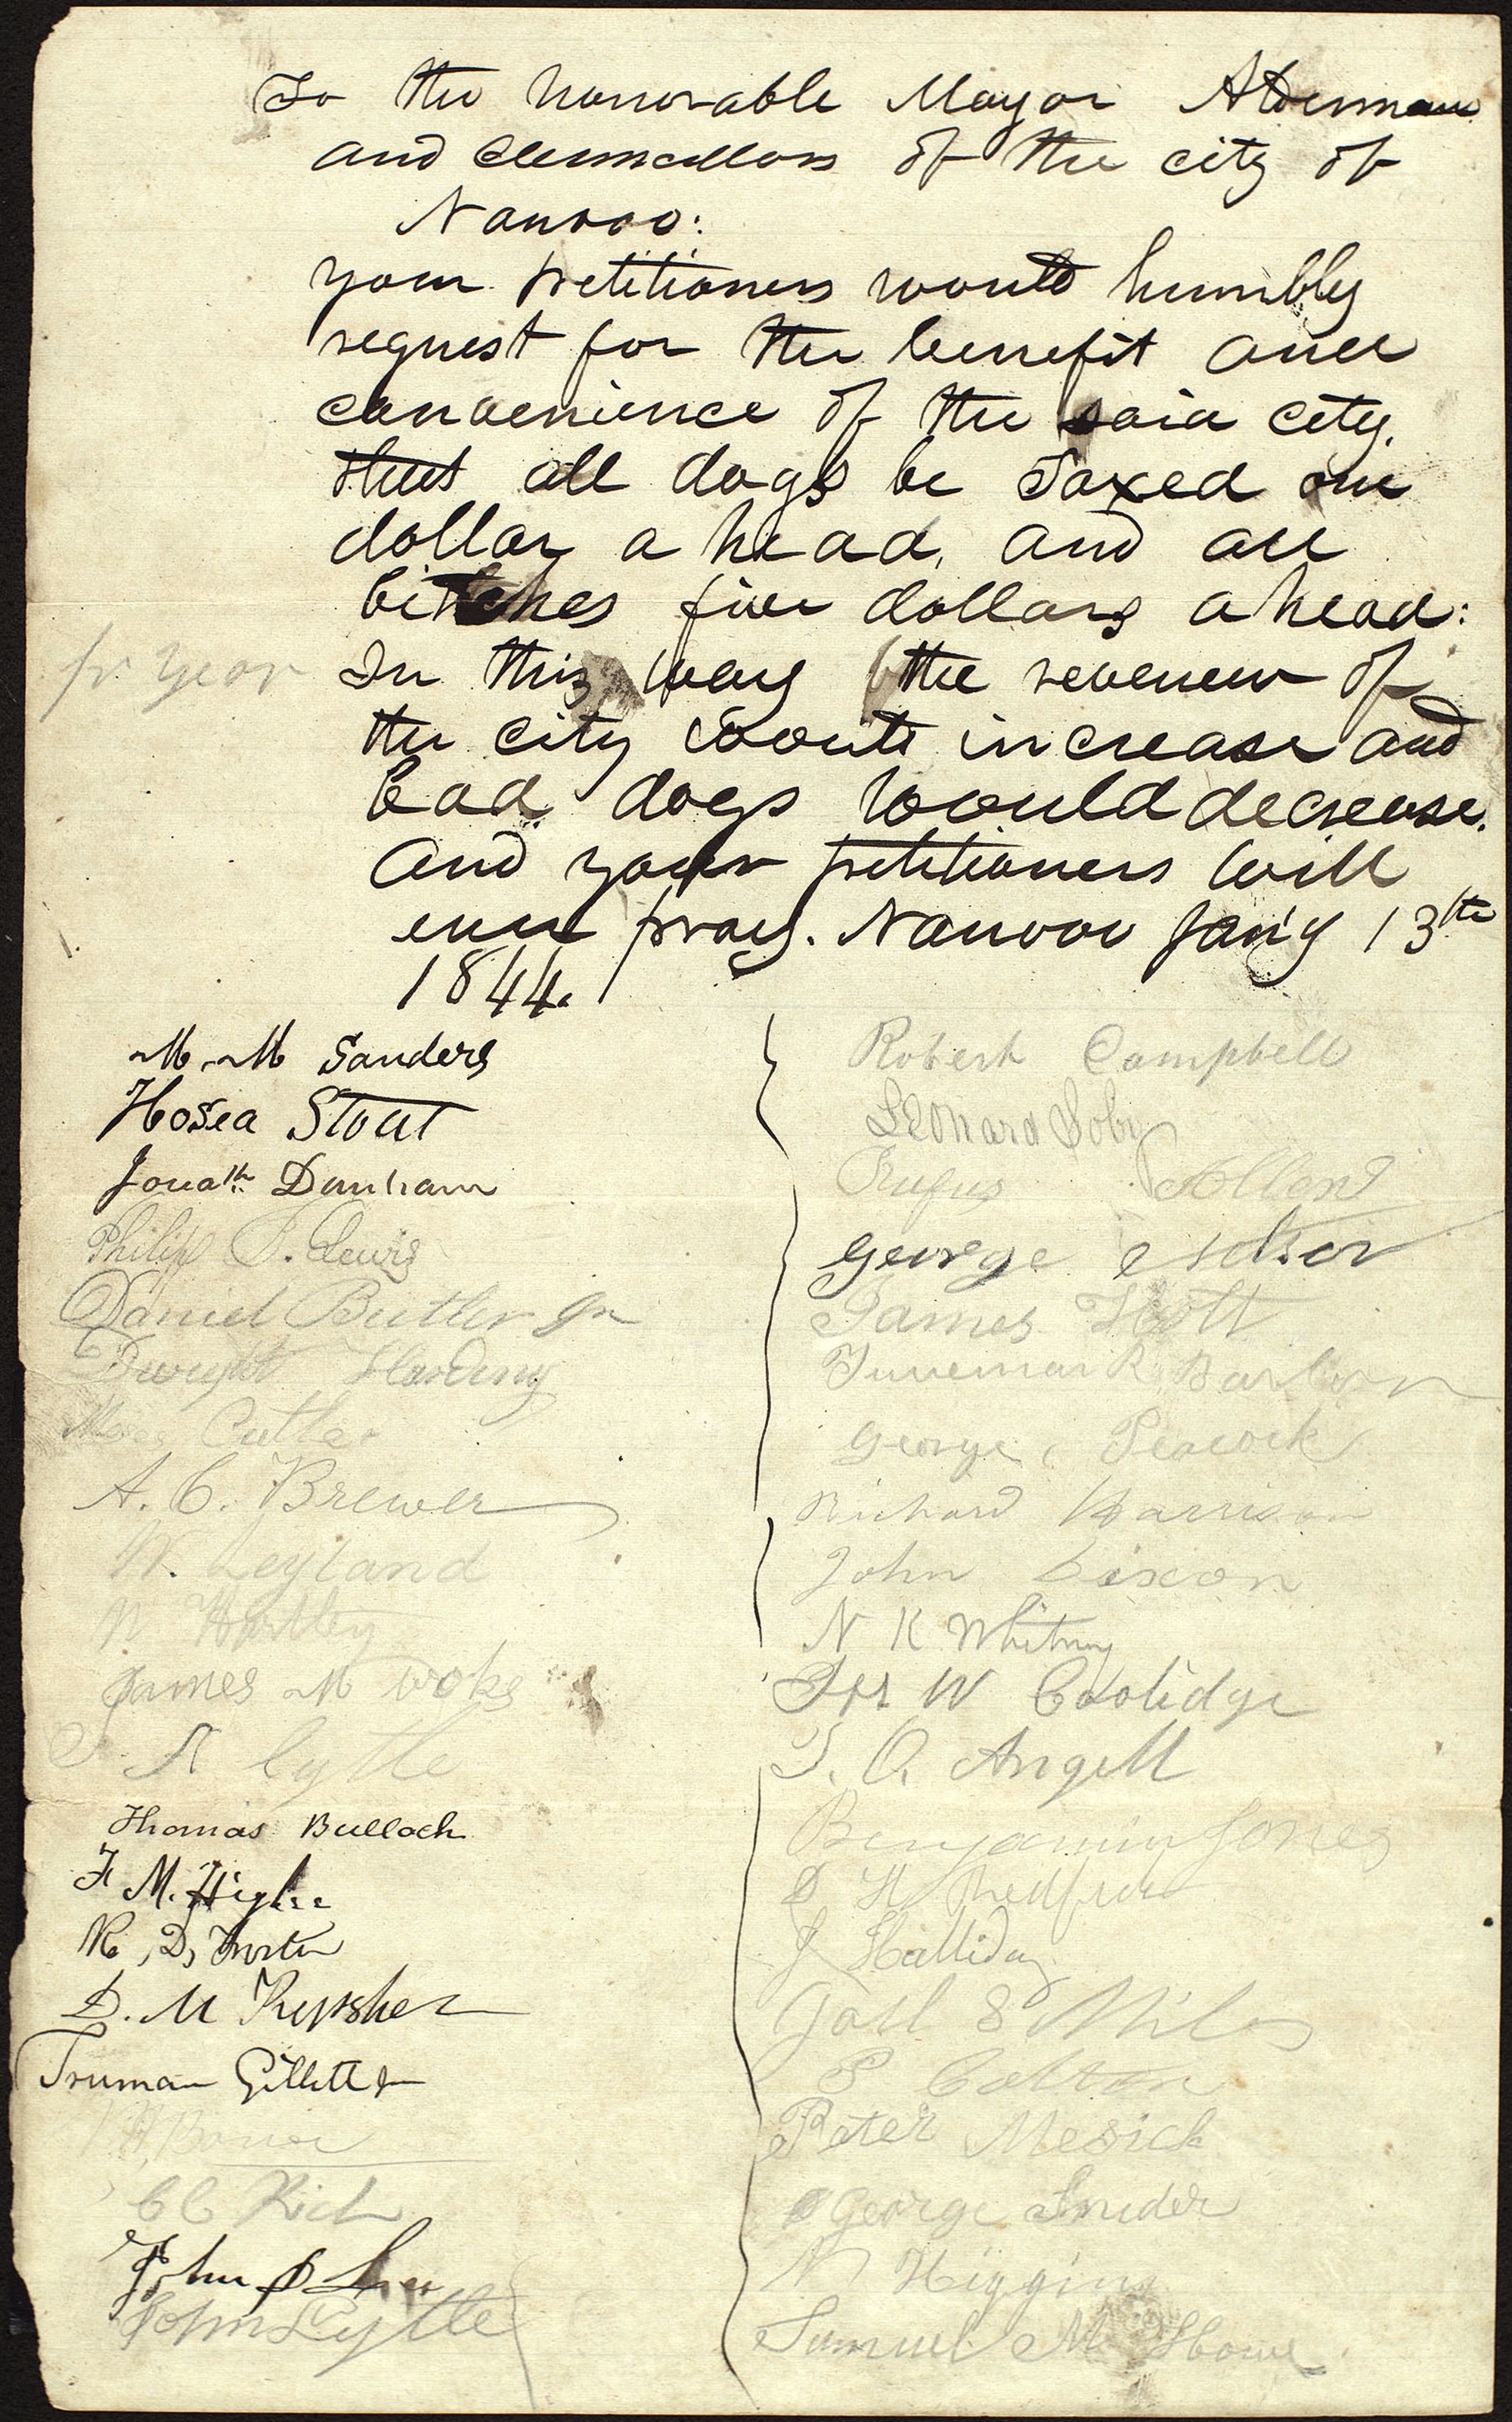 To the honorable Mayor Aldermen
and Councillors of the city of
Nauvoo:
your petitioners would humbly
request for the benefit and
convenience of the said city.
that all dogs be Taxed one
dollar a head, and all
bitches five dollars a head:
pr year
In this way the revenew of
the city would increase and
bad dogs would decrease.
And your petitioners will
ever pray. Nauvoo Jan'y 13th
1844.
M. M Sanders
Hosea Stout
Jonath Dunham
Philip B. Lewis
Daniel Butler Jr
Dwight Harding
Cutler
A. C. Brewer
W. Leyland
W Hartley
James M
A Lytle
Thomas Bullock
F M. Higbee
R, D, Foster
D. M Repsher
Truman Gillett Jr
C C Rich
John D Lee
John Lytle
Robert Campbell
Leonard Soby
Rufus Allen
George
James Hott
Trueman R Barlow
George Peacock
Richard Harrison
John Dixon
N K Whitney
Jos W Coolidge
T. O. Angell
Benjamin Jones
S H
J Halliday
Joel S Miles
P Colton
Peter Mesick
George Snider
N Higgins
Samuel M Howe